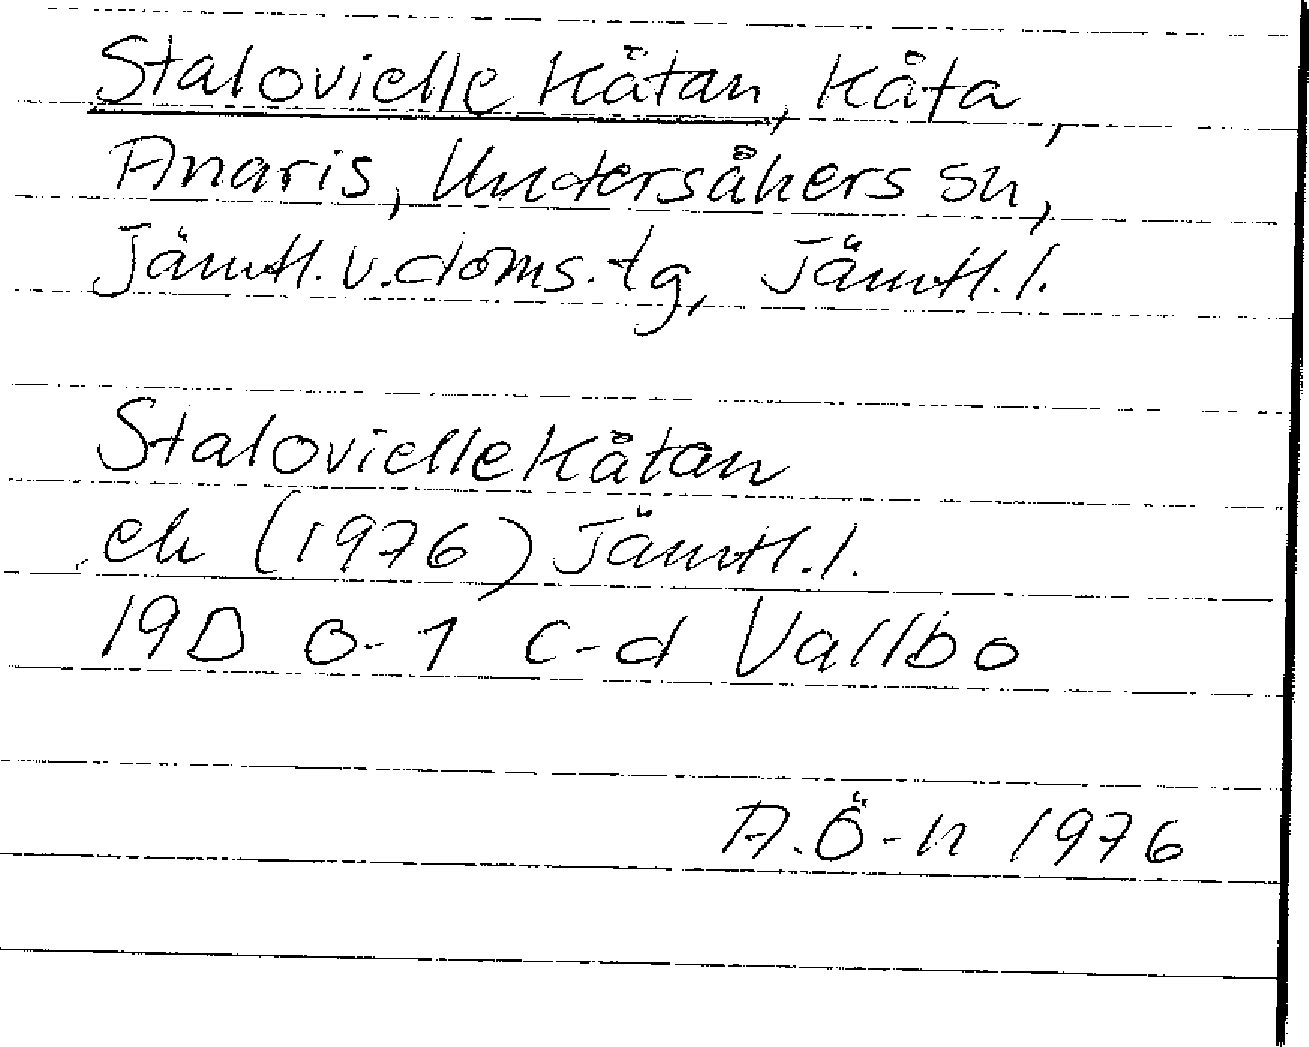 Stalovielle kåtan, kåta,
Anaris, Undersåkers sn,
Jämtl.v.doms.tg, Jämtl.l.
Staloviellekåtan
ek (1976) Jämtl.l.
19D 0-1 c-d Vallbo
A.Ö-n 1976